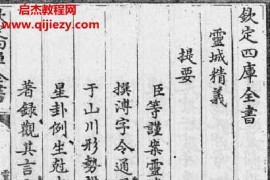 启杰教程网
www.qijiejc.com
欽定四庫全書
靈城精義
提要
臣等謹案靈
撰溥字令通
于山川形勢
星卦例生尅
著録觀其言